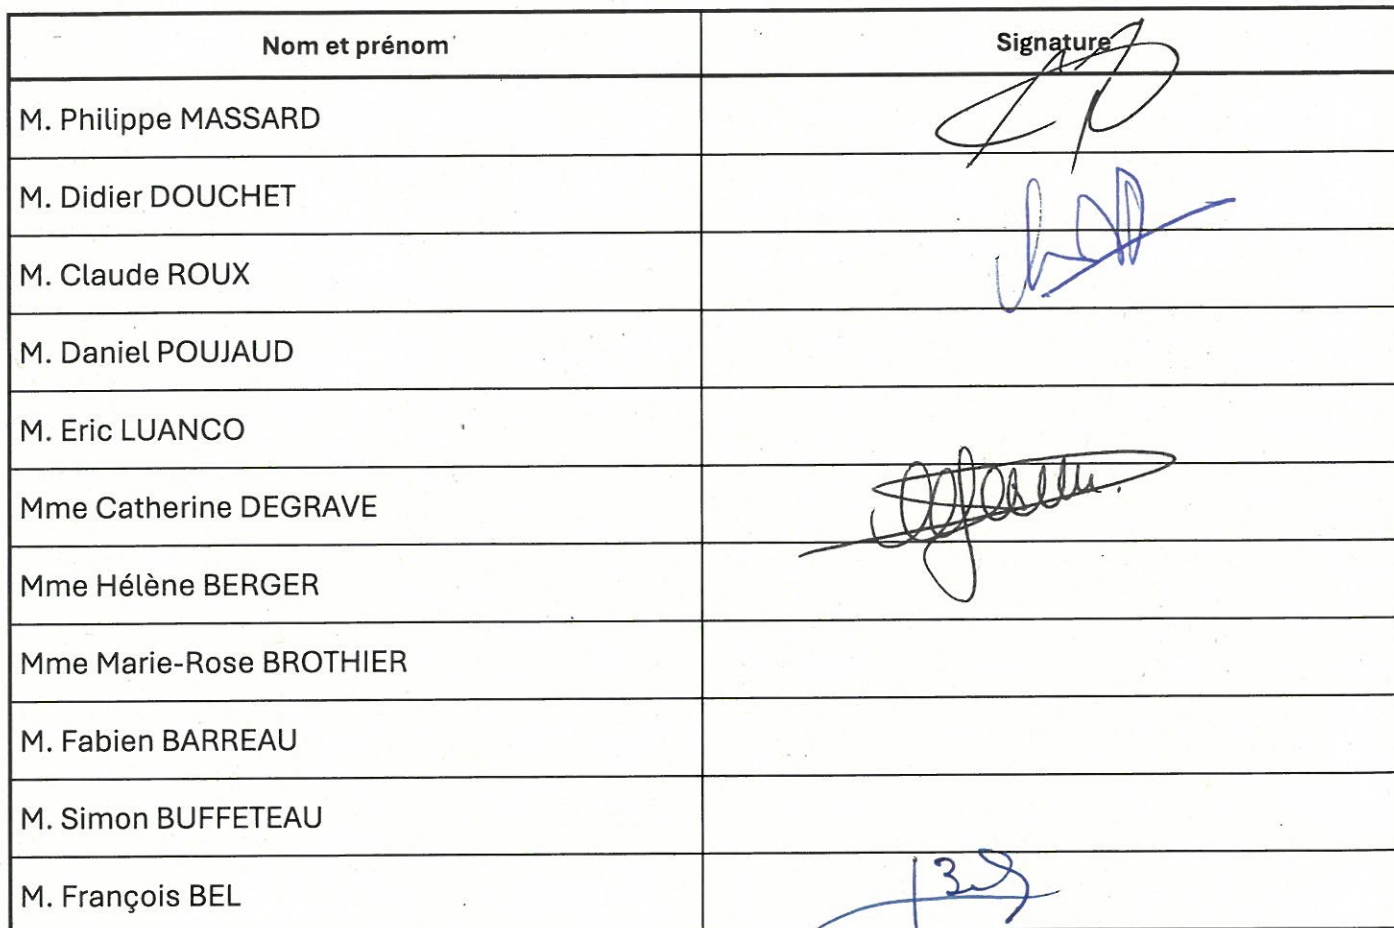 Nom et prénom Signature
M. Philippe MASSARD
M. Didier DOUCHET
M. Claude ROUX
M. Daniel POUJAUD
M. Eric LUANCO
Mme Catherine DEGRAVE
Mme Hélène BERGER
Mme Marie-Rose BROTHIER
M. Fabien BARREAU
M. Simon BUFFETEAU
M. François BEL